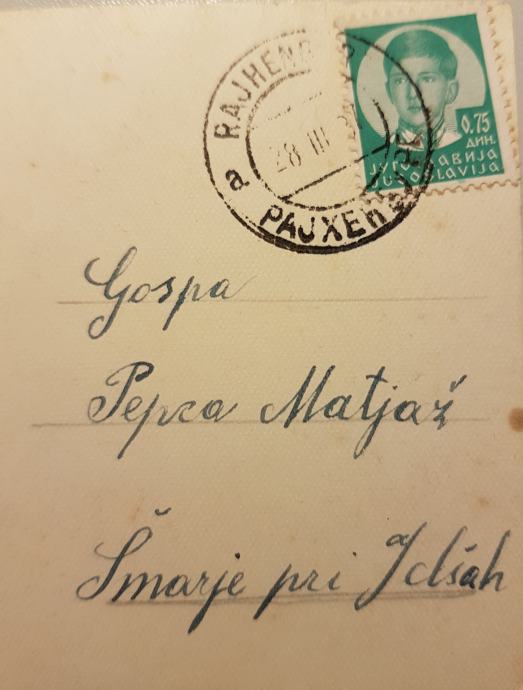 a RAJHEN
28 III
РАЈХЕН
0.75
ДИН.
ЈУГОСЛАВИЈА
JUGOSLAVIJA
Gospa
Pepca Matjaž
Šmarje pri Jelšah